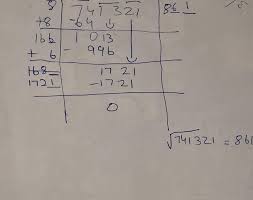 8 741321 861
+8 -64
166 1013
+ 6 - 996
168 1721
1721 -1721
0
√741321 = 861